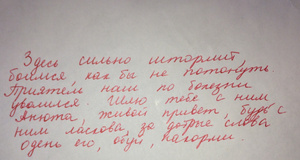 Здесь сильно штормит,
боимся, как бы не потонуть.
Приятель наш по болезни
уволился Шлю тебе с ним
Анюта, живой привет, будь с
ним ласкова, за добрые слова
одень его, обуй, накорми